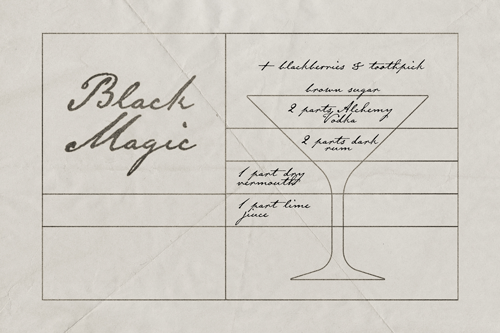 Black
Magic
+ blackberries & toothpick
brown sugar
2 parts Alchemy
Vodka
2 parts dark
rum
1 part dry
vermouth
1 part lime
juice